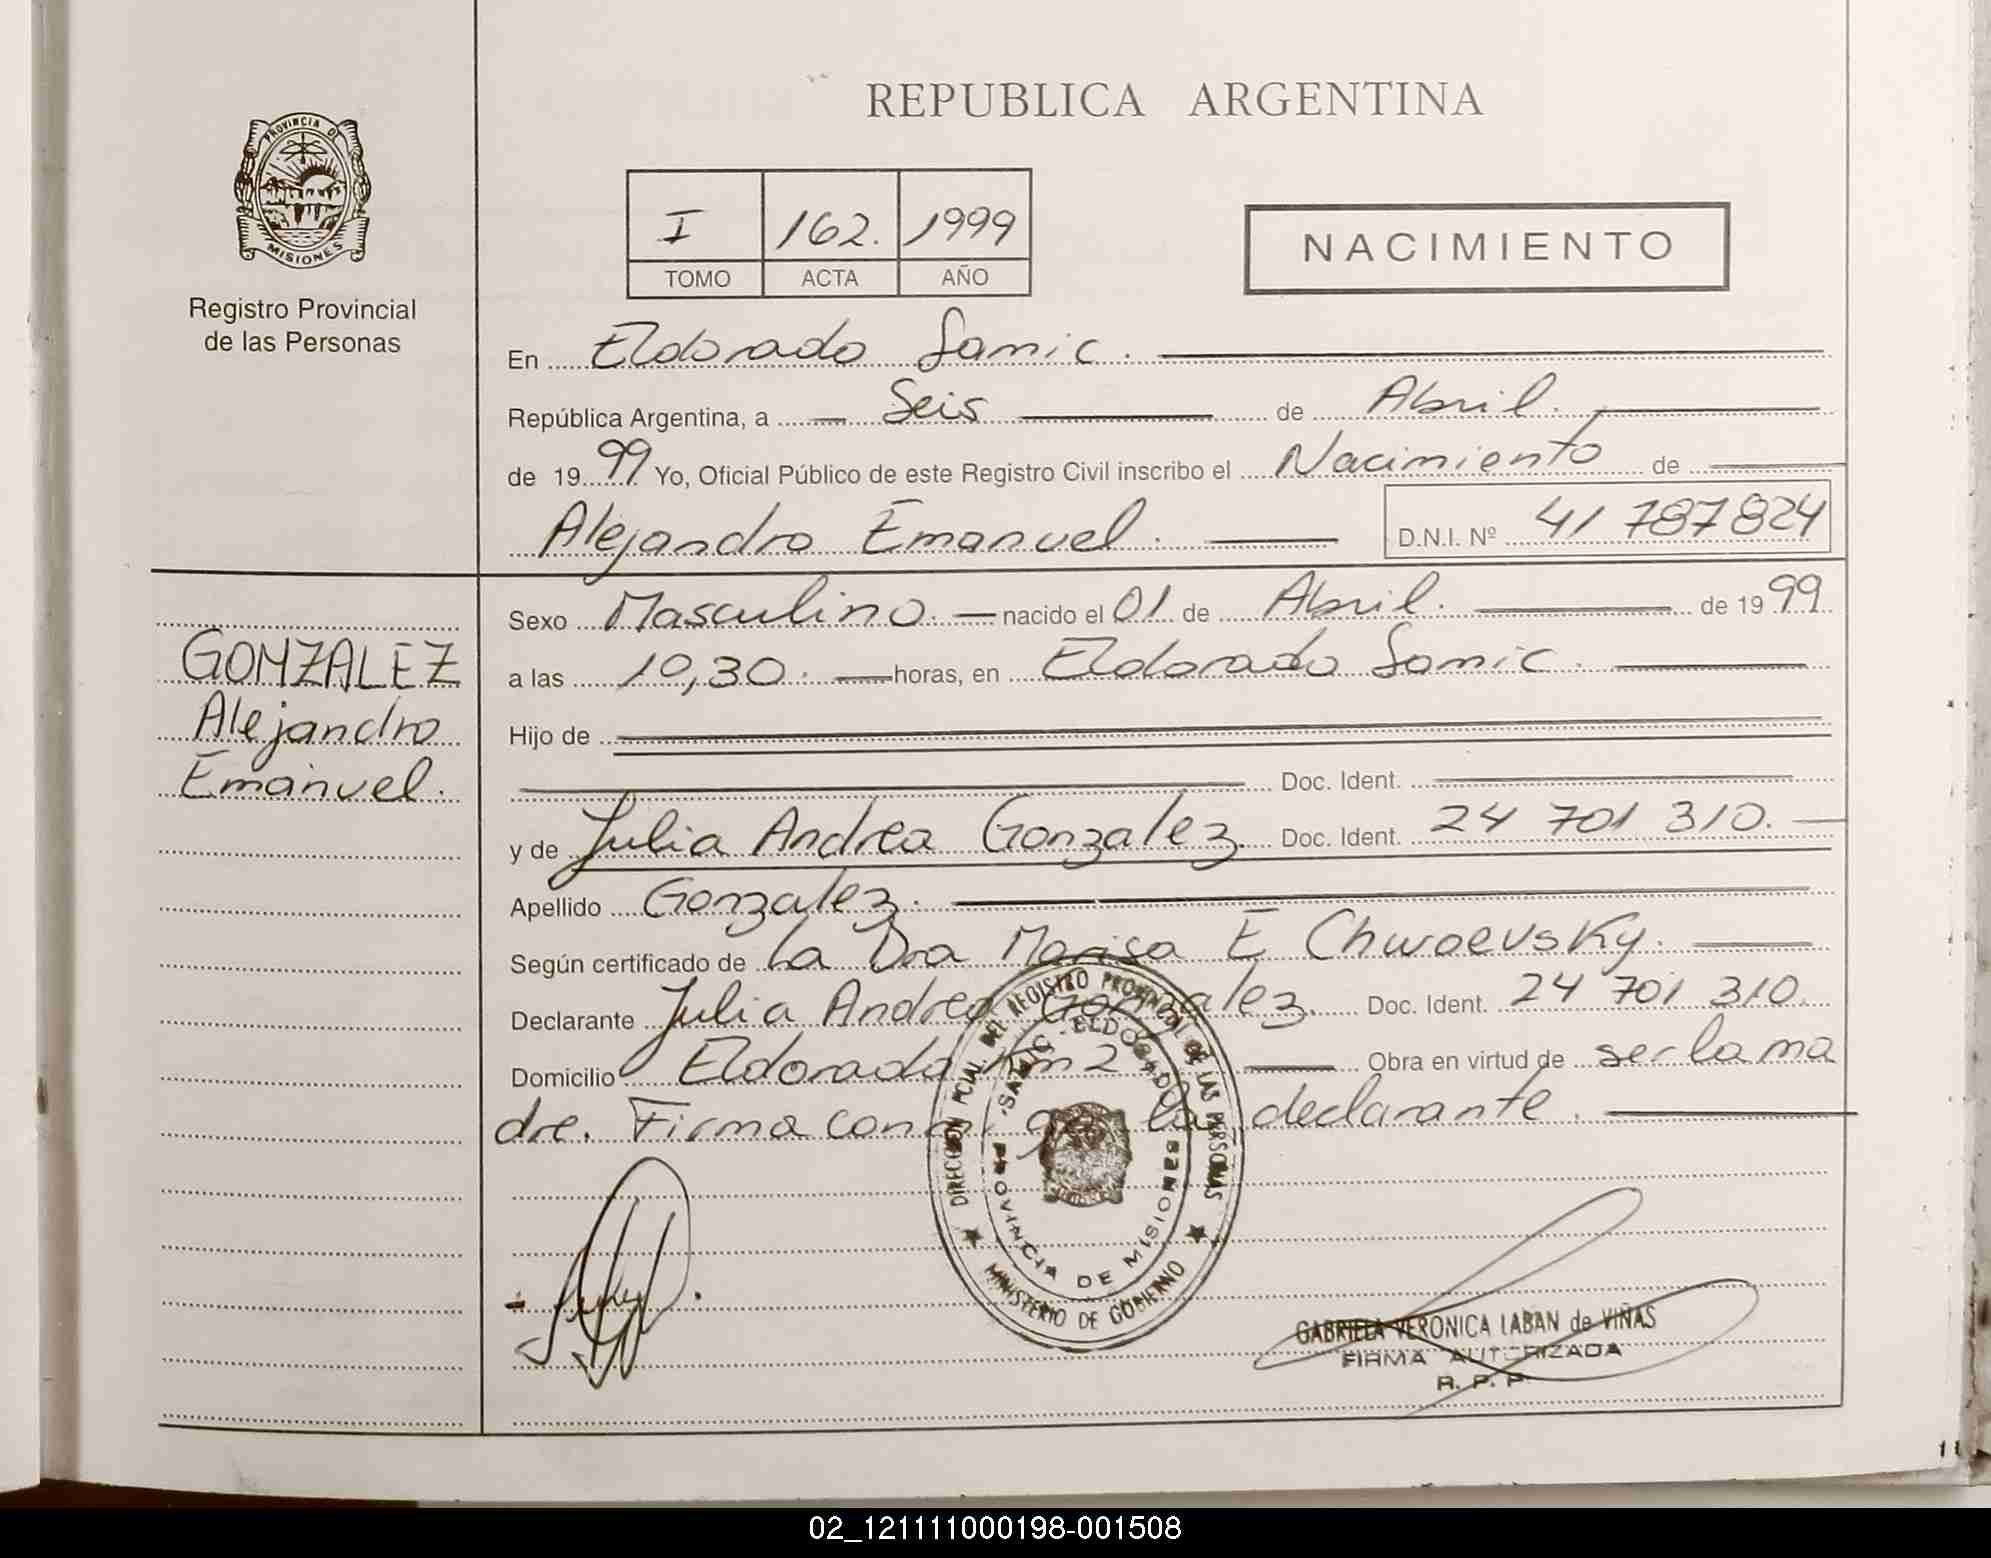 REPUBLICA ARGENTINA
PROVINCIA DE
MISIONES
Registro Provincial
de las Personas
I 162. 1999
TOMO ACTA AÑO
NACIMIENTO
En Eldorado Samic.
República Argentina, a Seis de Abril.
de 1999 Yo, Oficial Público de este Registro Civil inscribo el Nacimiento de
Alejandro Emanuel. D.N.I. Nº 41 787 824
GONZALEZ
Alejandro
Emanuel.
Sexo Masculino. nacido el 01. de Abril. de 1999.
a las 10,30. horas, en Eldorado Samic.
Hijo de
Doc. Ident.
y de Julia Andrea Gonzalez. Doc. Ident. 24 701 310.
Apellido Gonzalez.
Según certificado de La Dra Marisa E Chwoevsky.
Declarante Julia Andrea Gonzalez. Doc. Ident. 24 701 310.
Domicilio Eldorado Km 2 Obra en virtud de ser la ma
dre. Firma conmigo la declarante.
DIRECCION PCIAL. DEL REGISTRO PROVINCIAL DE LAS PERSONAS
SAMIC - ELDORADO
PROVINCIA DE MISIONES
MINISTERIO DE GOBIERNO
GABRIELA VERONICA LABAN de VIÑAS
FIRMA AUTORIZADA
R. P. P
02_121111000198-001508